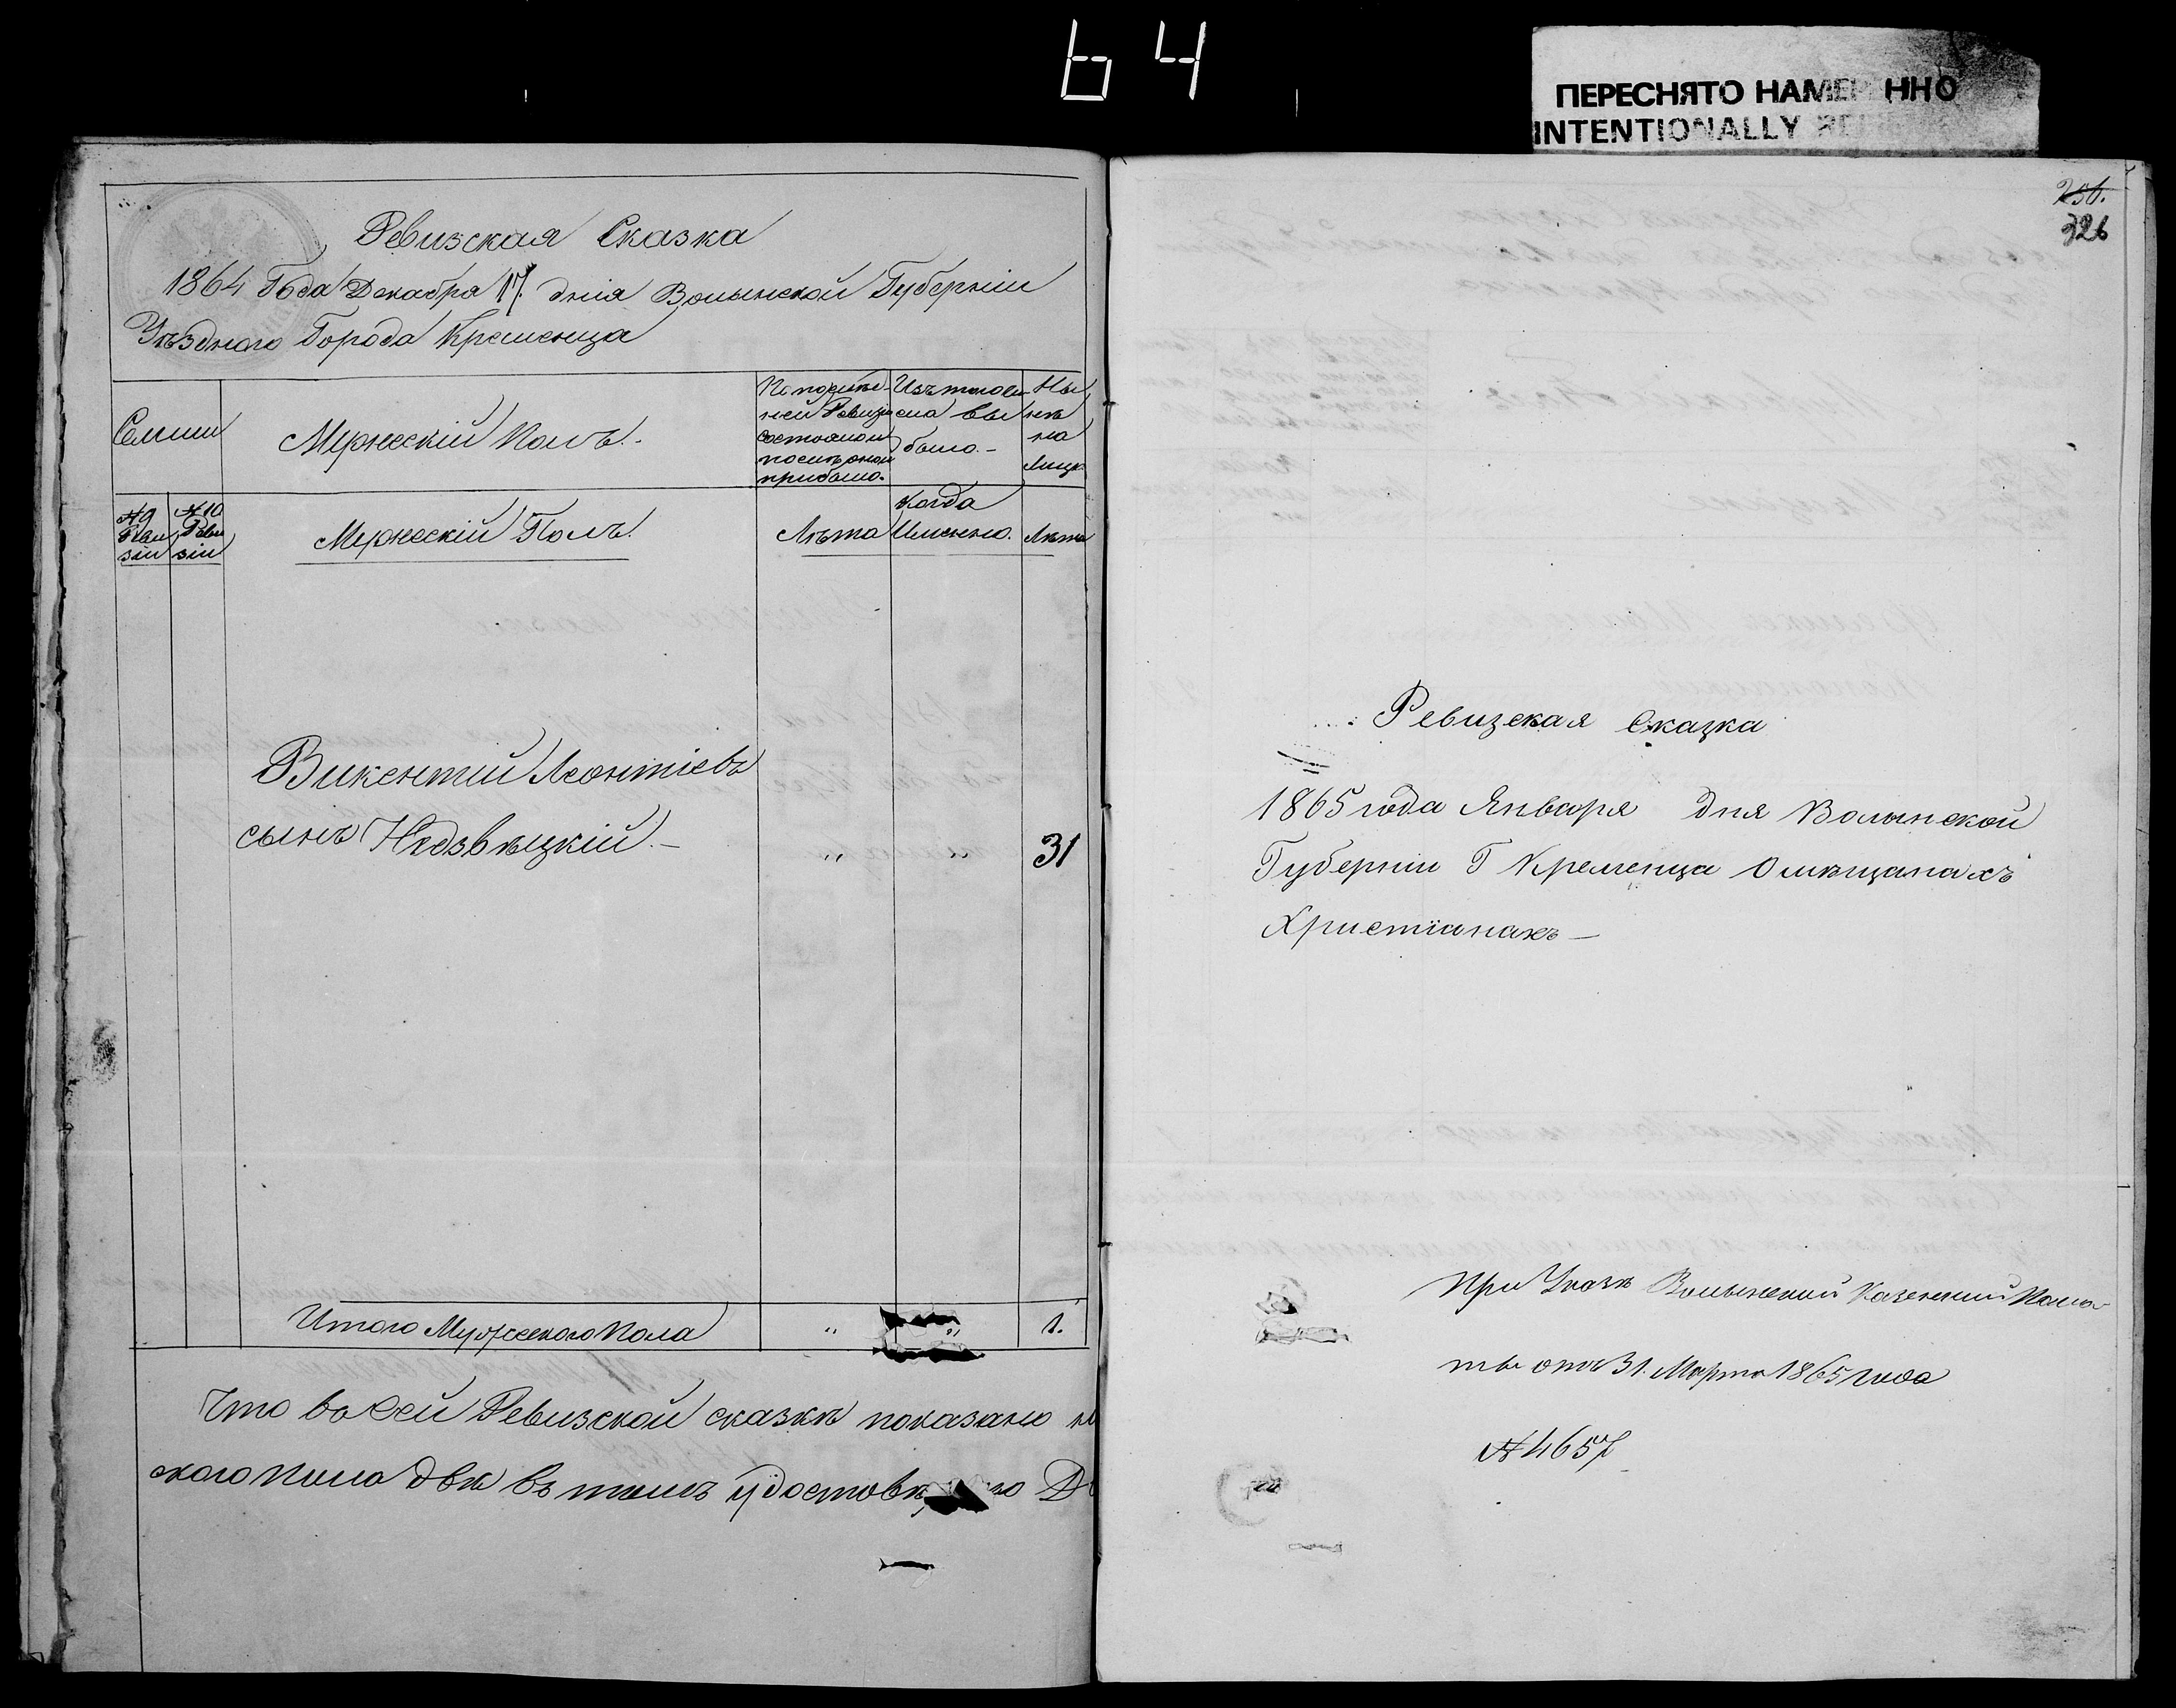 64
ПЕРЕСНЯТО НАМЕР ННО
INTENTIONALLY
Ревизская Сказка
1864 Года Декабря 17. дня Волынской Губерніи
Уѣзднаго Города Кременца
Семьи
Мужескій Полъ.
По послѣд-
ней Ревизіи
состояло и
послѣ оной
прибыло.
Изъ того чи
сла вы
было.-
Ны
нѣ
на
лицо
№ 9 Реви зіи
№ 10 Реви зіи
Мужескій Полъ.
Лѣта
Когда
Именно.
Лѣта
Викентій Леонтіевъ
сынъ Нѣдзвѣцкій.-
" " 31
Итого Мужескаго пола " " 1.
Что во сей Ревизской сказкѣ показано
скаго пола двѣ въ томъ удостовѣ
256.
326
Ревизская Сказка
1865 года Января дня Волынской
Губерніи Г Кременца О мѣщанахъ
Христіанахъ -
При Указѣ Волынской Казенной Пала
ты отъ 31. Марта 1865 года
№ 4657